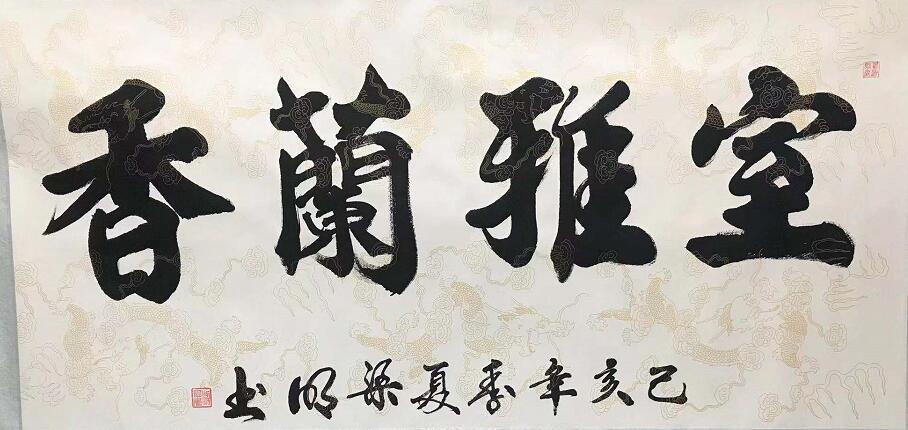 室雅蘭香
己亥年季夏梁明书